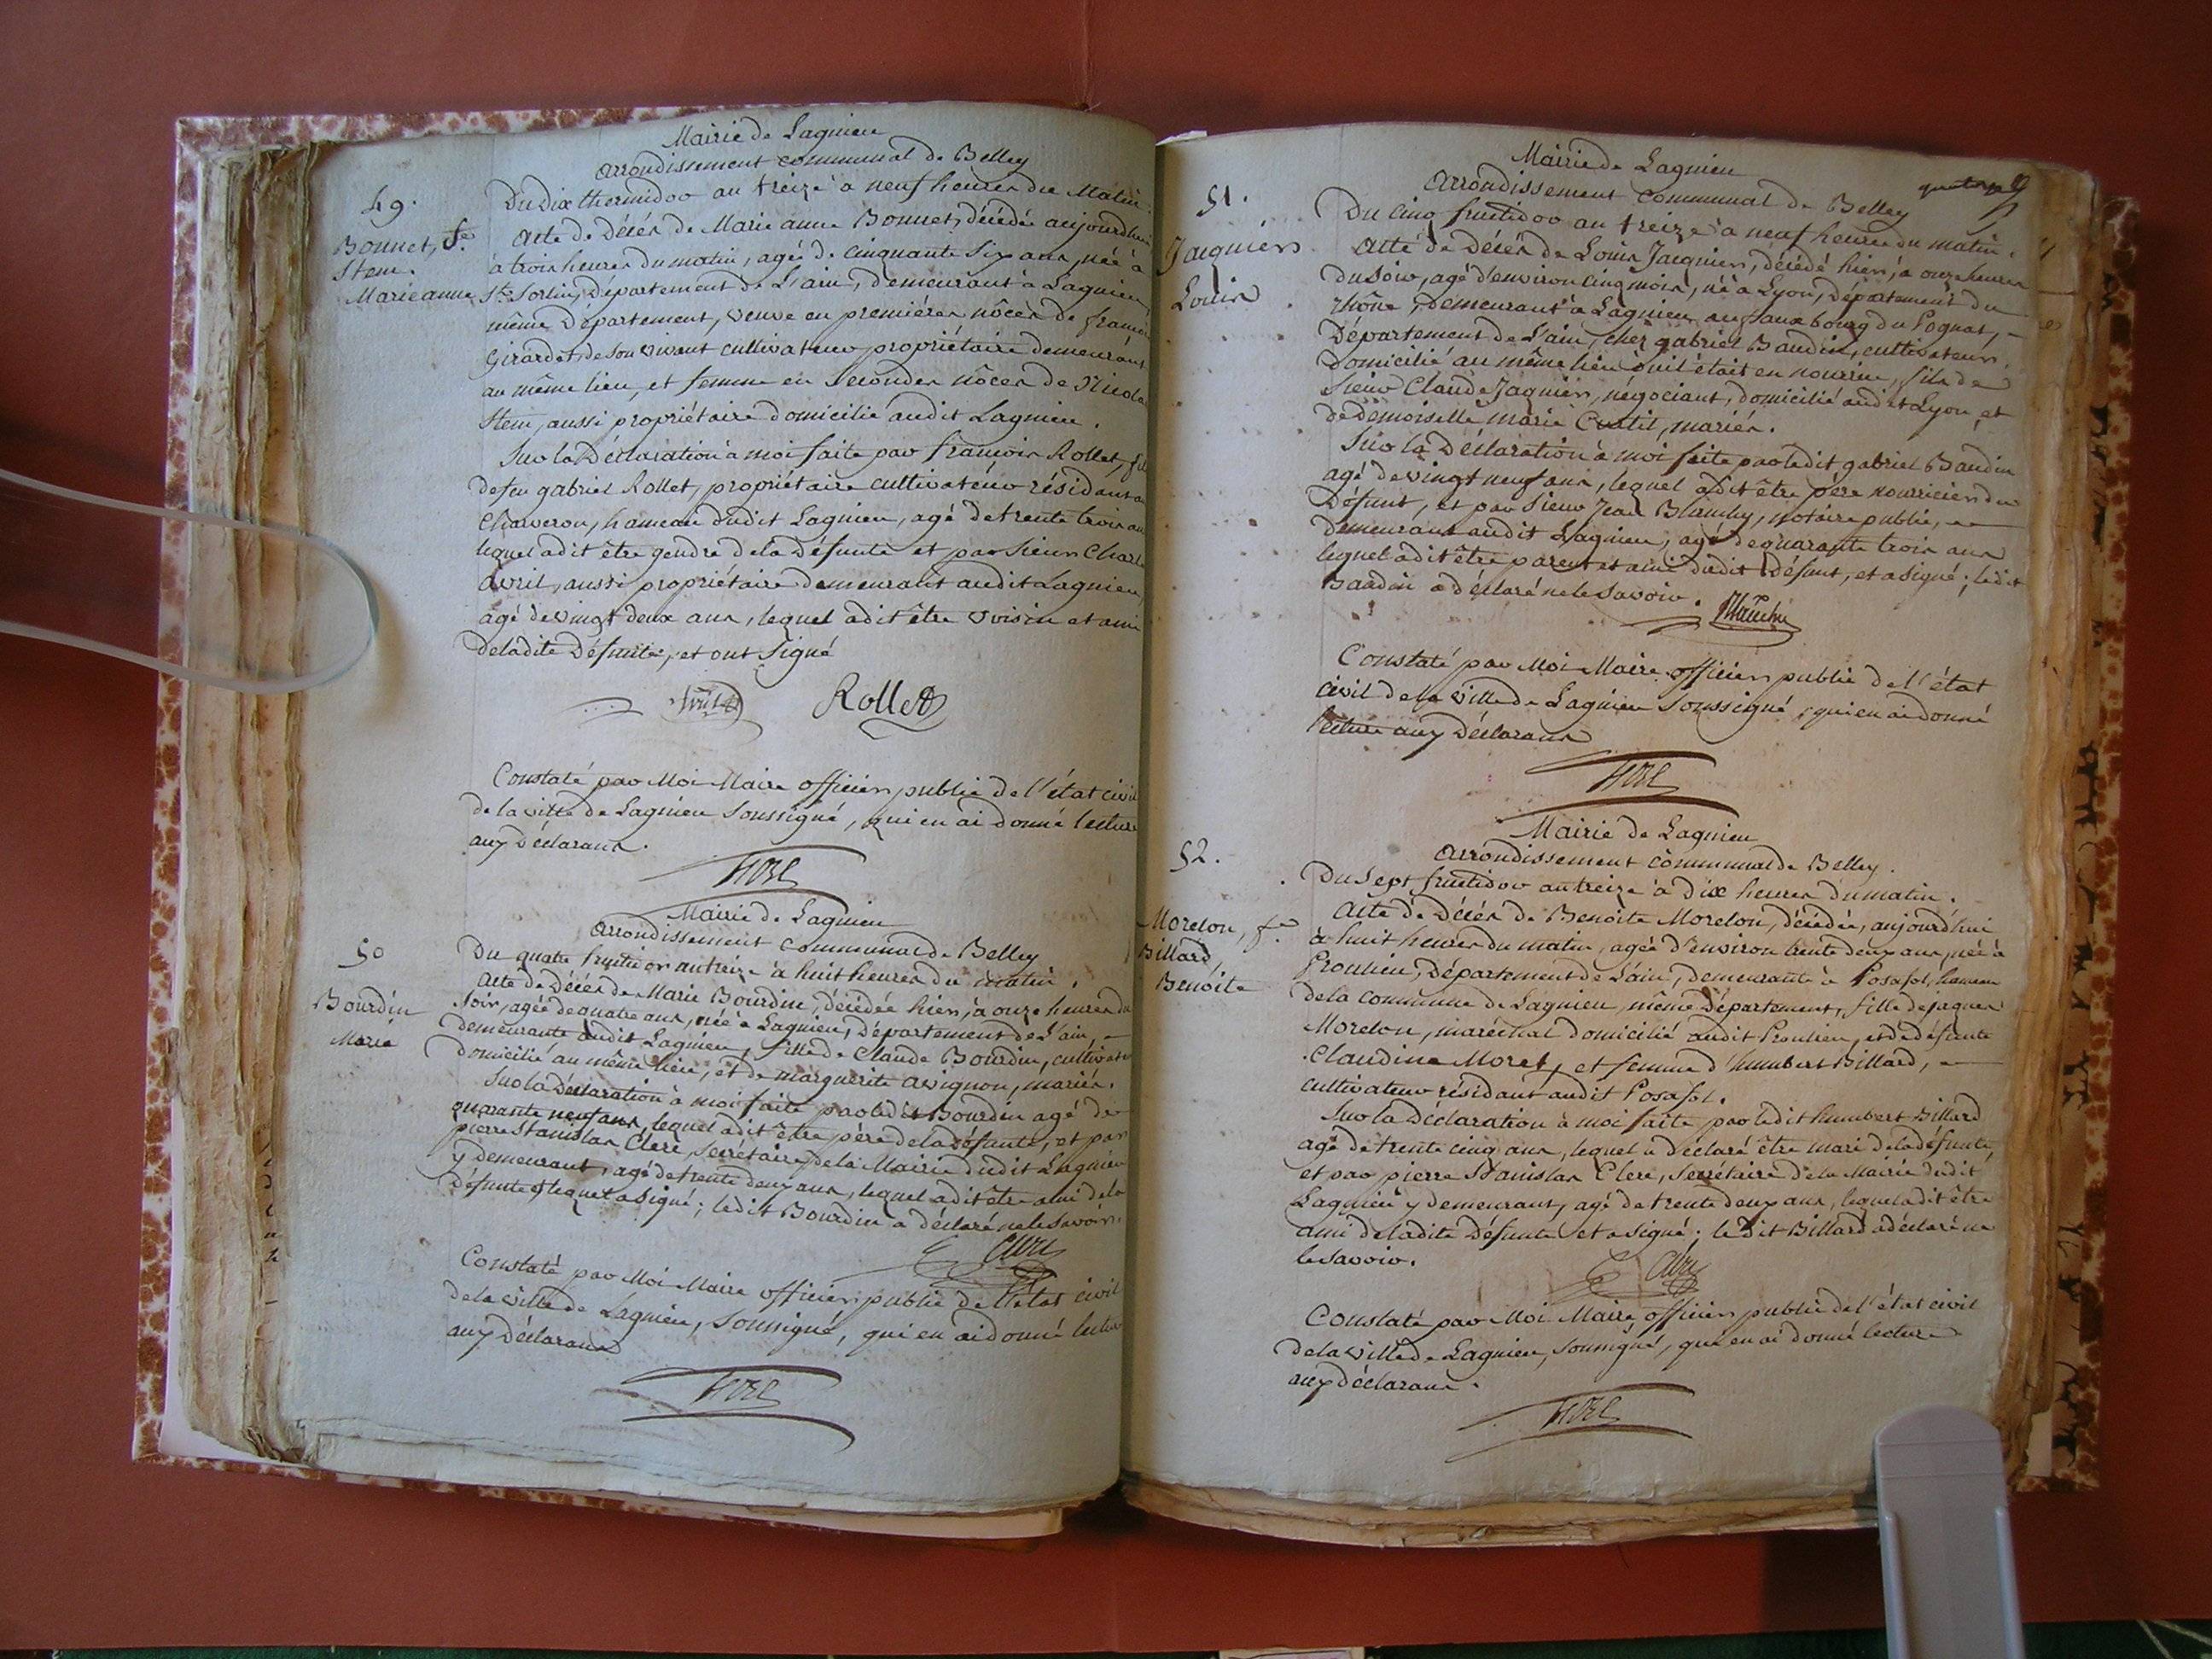 Mairie de Lagnieu
Arrondissement communal de Belley
49.
Bonnet, fe
Stem.
Marie anne
Du Dix thermidor an treize à neuf heures du Matin.
Acte de Décès de Marie anne Bonnet, décédé aujourdhui
à trois heures du matin, agé de cinquante Six ans, née à
St. Sorlin, Département de L'ain, demeurant à Lagnieu
même Département, veuve en premières nôces de françois
Girardet, de son vivant cultivateur propriétaire demeurant
au même lieu, et femme en Secondes nôces de Nicolas
Stem, aussi propriétaire domicilié audit Lagnieu.
Sur la Déclaration à moi faite par françois Rollet, fils
de feu gabriel Rollet, propriétaire cultivateur résidant au
Charveron, hameau dudit Lagnieu, agé de trente trois ans
lequel a dit être gendre de la Défunte et par Sieur Charles
avril, aussi propriétaire demeurant audit Lagnieu,
agé de vingt deux ans, lequel a dit être voisin et ami
de ladite Défunte, et ont Signé
Rollet
Constaté par Moi Maire officier public de l'état civil
de la ville de Lagnieu Soussigné, qui en ai donné lecture
aux Déclarans.
Mairie de Lagnieu
Arrondissement communal de Belley
50
Bourdin
Marie
Du quatre fructidor an treize à huit heures du matin.
Acte de Décès de Marie Bourdin, décédée hier, à onze heures du
Soir, agée de quatre ans, née à Lagnieu, Département de L'ain,
demeurante audit Lagnieu, fille de Claude Bourdin, cultivateur
domicilié au même lieu, et de marguerite avignon, mariés.
Sur la Déclaration à moi faite par ledit Bourdin agé de
quarante neuf ans, lequel a dit être père de la défunte, et par
pierre Stanislas Clerc, Secrétaire de la Mairie dudit Lagnieu
y demeurant, agé de trente deux ans, lequel a dit être ami de la
défunte et lequel a signé; ledit Bourdin a déclaré ne le savoir.
Clerc
Constaté par Moi Maire officier public de l'état civil
de la ville de Lagnieu, Soussigné, qui en ai donné lecture
aux Déclarans
Mairie de Lagnieu
Arrondissement communal de Belley
51.
Jacquier
Louis
Du cinq fructidor an treize à neuf heures du matin.
Acte de Décès de Louis Jacquier, décédé hier, à onze heures
du Soir, agé d'environ cinq mois, né à Lyon, Département du
rhône, demeurant à Lagnieu au fauxbourg du Pognat,
Département de L'ain, chez gabriel Baudin, cultivateur,
domicilié au même lieu où il était en nourrice, fils de
Sieur Claude Jaquier, négociant, domicilié audit Lyon, et
de demoiselle marie Coutil, mariés.
Sur la Déclaration à moi faite par ledit gabriel Baudin
agé de vingt neuf ans, lequel a dit être père nourricier du
Défunt, et par Sieur Jean Blanchy, notaire public,
demeurant audit Lagnieu, agé de quarante trois ans
lequel a dit être parent et ami dudit Défunt, et a signé; ledit
Baudin a déclaré ne le savoir.
Constaté par Moi Maire officier public de l'état
civil de la ville de Lagnieu Soussigné, qui en ai donné
lecture aux Déclarans
Mairie de Lagnieu
Arrondissement communal de Belley.
52.
Morelon, fe
Billard,
Benoite
Du Sept fructidor an treize à Dix heures du matin.
Acte de Décès de Benoite Morelon, décédée, aujourd'hui
à huit heures du matin, agée d'environ trente deux ans, née à
Proulieu, Département de L'ain, demeurante à Posafol, hameau
de la commune de Lagnieu, même Département, fille de jaques
Morelon, maréchal domicilié audit Proulieu, et de défunte
Claudine Moret, et femme d'humbert Billard,
cultivateur résidant audit Posafol.
Sur la Déclaration à moi faite par ledit humbert Billard
agé de trente cinq ans, lequel a déclaré être mari de la défunte,
et par pierre Stanislas Clerc, Secrétaire de la Mairie dudit
Lagnieu y demeurant, agé de trente deux ans, lequel a dit être
ami de ladite Défunte et a signé; le Dit Billard a déclaré ne
le savoir.
Clerc
Constaté par Moi Maire officier public de l'état civil
de la ville de Lagnieu, soussigné, qui en ai donné lecture
aux déclarans.